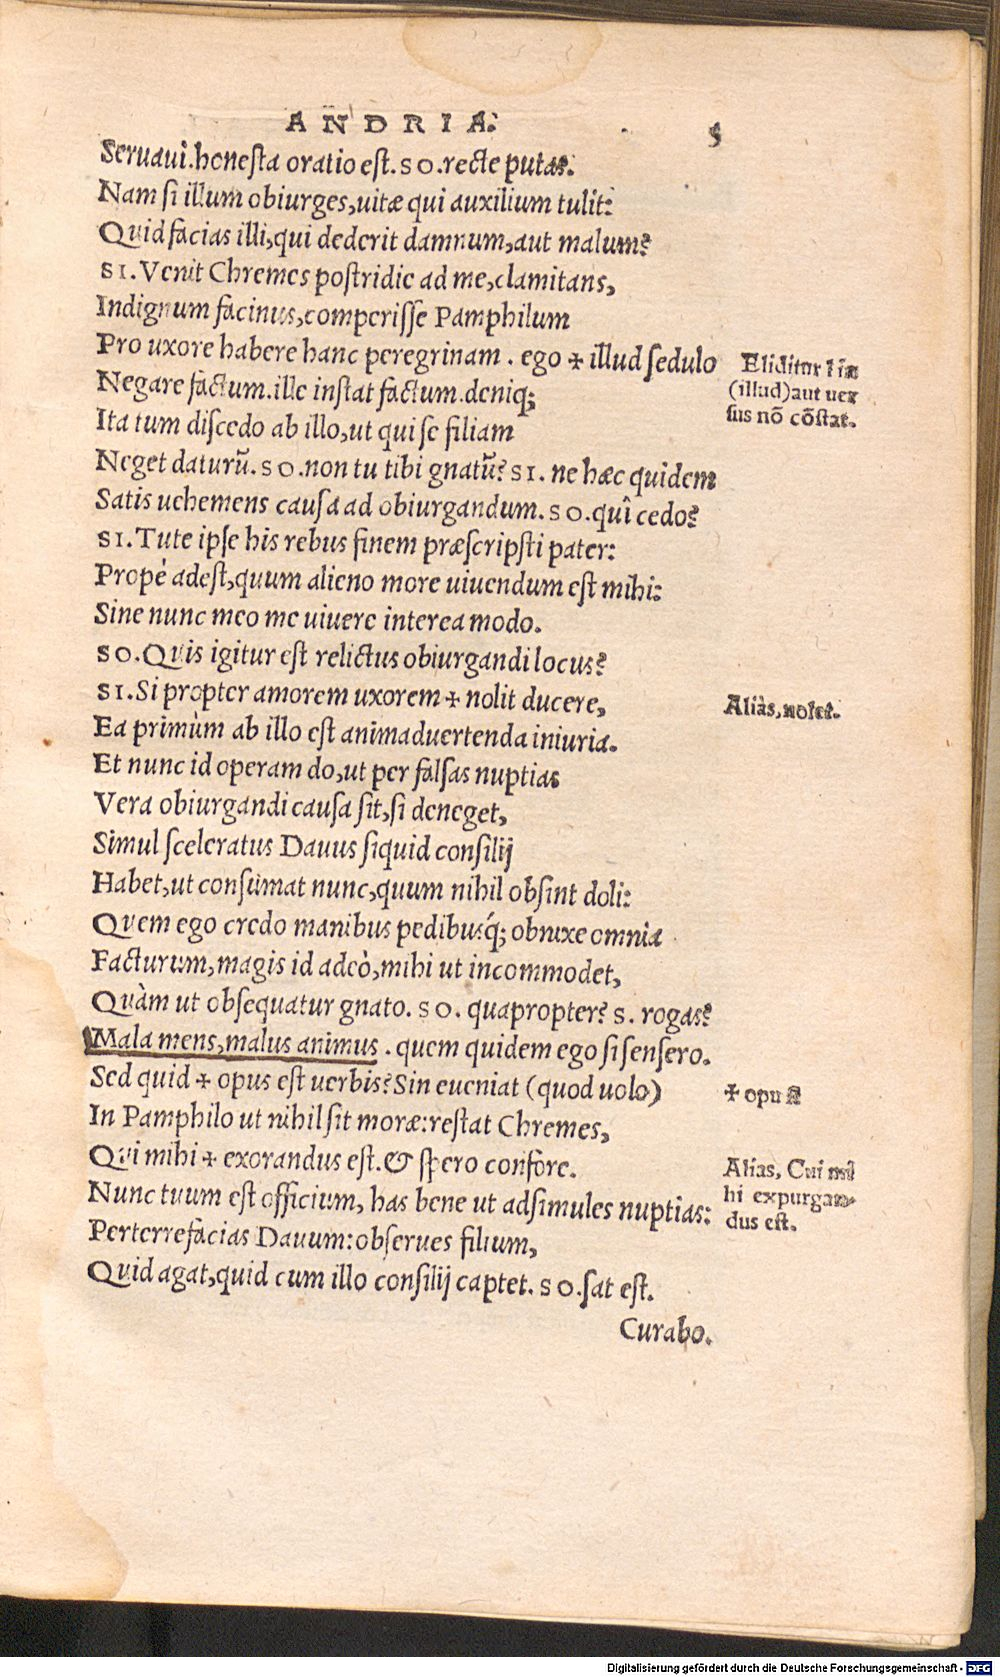 ANDRIA. 5
Seruaui.honesta oratio est. SO.recte putas.
Nam si illum obiurges,uitæ qui auxilium tulit:
Quid facias illi,qui dederit damnum,aut malum?
SI.Venit Chremes postridie ad me,clamitans,
Indignum facinus,comperisse Pamphilum
Pro uxore habere hanc peregrinam . ego ✢ illud sedulo
Eliditur l in
Negare factum.ille instat factum.deniq;
(illud)aut uer
sus nō cōstat.
Ita tum discedo ab illo,ut qui se filiam
Neget daturū. SO.non tu tibi gnatū? SI. ne hæc quidem
Satis uehemens causa ad obiurgandum. SO.quî cedo?
SI.Tute ipse his rebus finem præscripsti pater:
Propè adest,quum alieno more uiuendum est mihi:
Sine nunc meo me uiuere interea modo.
SO.Quis igitur est relictus obiurgandi locus?
SI.Si propter amorem uxorem ✢ nolit ducere,
Aliàs,nolet.
Ea primùm ab illo est animaduertenda iniuria.
Et nunc id operam do,ut per falsas nuptias
Vera obiurgandi causa sit,si deneget,
Simul sceleratus Dauus siquid consilij
Habet,ut consumat nunc,quum nihil obsint doli:
Quem ego credo manibus pedibusq́; obnixe omnia
Facturum,magis id adeò,mihi ut incommodet,
Quàm ut obsequatur gnato. SO. quapropter? S. rogas?
Mala mens,malus animus . quem quidem ego si sensero.
Sed quid ✢ opus est uerbis?Sin eueniat (quod uolo)
✢ opu st
In Pamphilo ut nihil sit moræ:restat Chremes,
Qui mihi ✢ exorandus est.& spero confore.
Alias, Cui mi
hi expurgan-
dus est.
Nunc tuum est officium, has bene ut adsimules nuptias:
Perterrefacias Dauum:obserues filium,
Quid agat,quid cum illo consilij captet. SO.sat est.
Curabo.
Digitalisierung gefördert durch die Deutsche Forschungsgemeinschaft - DFG